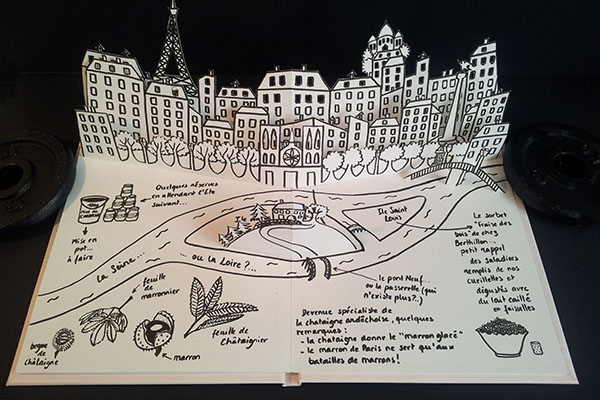 Quelques réserves
en attendant l'été
suivant...
Mise en
pot...
à faire
La Seine...
... ou la Loire ?...
De Saint
Louis
Le sorbet
"fraise des
bois" de chez
Berthillon...
petit rappel
des saladiers
remplis de nos
cueillettes et
dégustés avec
du lait caillé
en faisselles
le pont Neuf...
ou la passerelle (qui
n'existe plus ?..)
feuille de
marronnier
feuille de
Châtaignier
bogue de
Châtaigne
marron
Devenue spécialiste de
la chataigne ardéchoise, quelques
remarques :
- la chataigne donne le "marron glacé"
- le marron de Paris ne sert qu'aux
batailles de marrons !